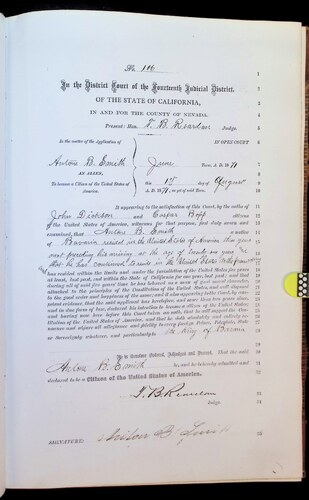 No. 116
In the District Court of the Fourteenth Judicial District.
OF THE STATE OF CALIFORNIA,
IN AND FOR THE COUNTY OF NEVADA.
Present: Hon. T. B. Reardan Judge.
In the matter of the Application of
IN OPEN COURT
Anton B. Smith
AN ALIEN,
To become a Citizen of the United States of America.
June Term, A. D. 1871
this 1st day of August
A. D. 1871
It appearing to the satisfaction of this Court, by the oaths of
John Dickson and Caspar Boff citizens
of the United States of America, witnesses for that purpose, first duly sworn and
examined, that Anton B. Smith a native
of Bavaria resided in the United States of America three years
next preceding his arriving at the age of twenty one years
that he has continued to reside in the United States to the present
has resided within the limits and under the jurisdiction of the United States five years
at least, last past, and within the State of California for one year, last past; and that
during all of said five years' time he has behaved as a man of good moral character,
attached to the principles of the Constitution of the United States, and well disposed
to the good order and happiness of the same; and it also appearing to the Court, by com-
petent evidence, that the said applicant has heretofore, and more than two years since,
and in due form of law, declared his intention to become a citizen of the United States;
and having now here before this Court taken an oath, that he will support the Con-
stitution of the United States of America, and that he doth absolutely and entirely re-
nounce and abjure all allegiance and fidelity to every foreign Prince, Potentate, State
or Sovereignty whatever, and particularly to the King of Bavaria
It is therefore Ordered, Adjudged and Decreed, That the said
Anton B. Smith be, and he is hereby admitted and
declared to be a Citizen of the United States of America.
T. B. Reardan
Judge.
SIGNATURE: Anton B Smith